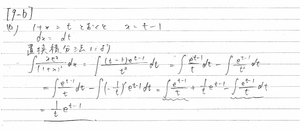 [9-b]
(b) 1+x = t とおくと x = t-1
dx = dt
置換積分法より
∫ xe^x/(1+x)^2 dx = ∫ (t-1)e^(t-1)/t^2 dt = ∫ e^(t-1)/t dt - ∫ e^(t-1)/t^2 dt
= ∫ e^(t-1)/t dt - ∫ (-1/t)' e^(t-1) dt = ∫ e^(t-1)/t dt + 1/t e^(t-1) - ∫ e^(t-1)/t dt
= 1/t e^(t-1)